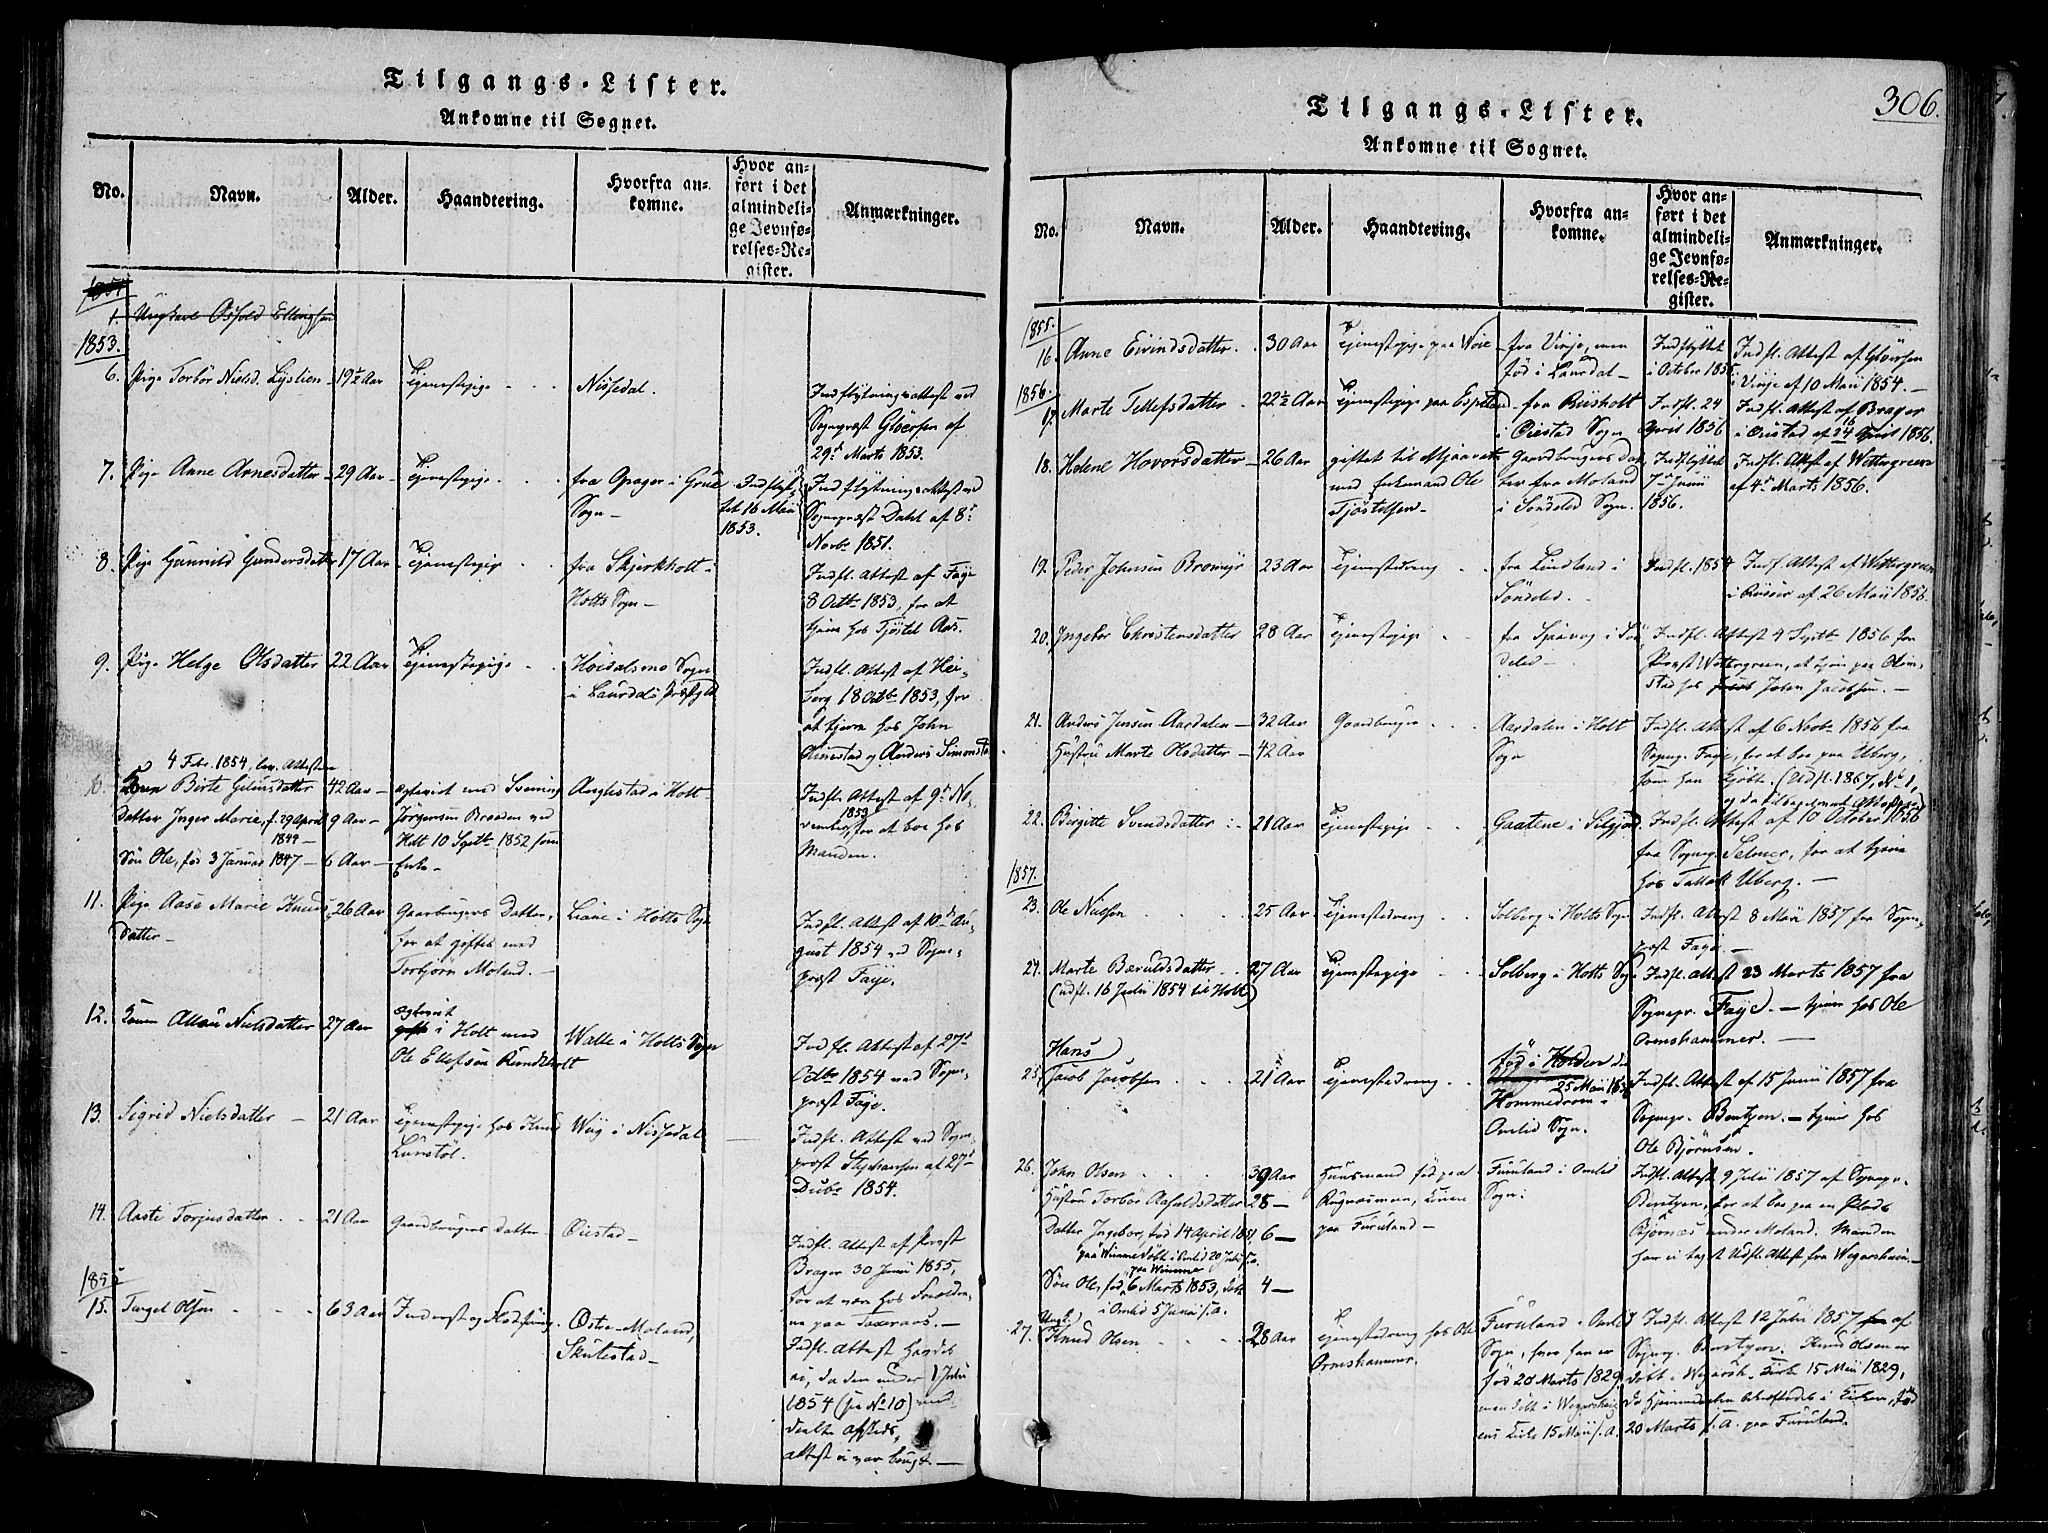 Tilgangs-Lister.
Ankomne til Sognet.
No.
Navn.
Alder.
Haandtering.
Hvorfra an-
komne.
Hvor an-
ført i det
almindeli-
ge Jevnfø-
relses-Re-
gister.
Anmærkninger.
1.
1853.
6. Pige Torbør Nielsd. Lystien 19½ Aar Tjenestepige Nissedal.
Indflytningsattest ved
Sognepræst Gløersen af
29d Marts 1853.
7. Pige Anne Arnesdatter 29 Aar Tjenestepige
fra Opager i Grue
Sogn
Indflyt-
tet 16 Mai
1853.
Indflytnings-Attest ved
Sognepræst Dahl af 8d
Novbr 1851.
8. Pige Gunnild Gundersdatter 17 Aar Tjenestepige
fra Skjerkholt i
Holts Sogn
Indfl. Attest af Faye
8 Octbr 1853, for at
tjene hos Tjøstel Aas.
9. Pige Helge Olsdatter 22 Aar Tjenestepige
Høidalsmo Sogn
i Laurdals Præstegjeld
Indfl. Attest af Hei-
berg 18 Octbr 1853, for
at tjene hos John
Simestad og Anders Simonstad.
4 Febr. 1854, lev. Attesten
10. Konen Birte Gjeruldsdatter 42 Aar
Datter Inger Marie, f. 29 April 9 Aar
1844
Søn Ole, fød 3 Januar 1847 6 Aar
ægteviet med Svenning
Jørgensen Braaden ved
Holt 10 Septbr 1852 som
Enke
Anglestad i Holt
Indfl. Attest af 9d No-
vember 1853, for at boe hos
Manden.
11. Pige Aase Marie Knuds-
datter
26 Aar
Gaarbrugers Datter,
for at giftes med
Torbjørn Moland.
Liane i Holts Sogn
Indfl. Attest af 10de Au-
gust 1854 ved Sogne-
præst Faye.
12. Konen Nielsdatter 27 Aar
ægteviet
i Holt med
Ole Ellefsen
Walle i Holts Sogn
Indfl. Attest af 27d
Octbr 1854 ved Sogne-
præst Faye.
13. Sigrid Nielsdatter 21 Aar
Tjenestepige hos Knud
Lunstøl.
Wiig i Nissedal
Indfl. Attest ved Sogne-
præst Stephansen af 27d
Decbr 1854.
14. Aaste Torjusdatter 21 Aar Gaardbrugers Datter Øiestad
Indfl. Attest af Provst
Brager 30 Juni 1855,
for at være hos Forældre-
ne paa Taxeraas.
1855
15. Targel Olsen 63 Aar Inderst og
Østre-Moland,
Skutestad
Indfl. Attest havdes
ei, da den under 1 Juli
1854 (see No 10) med-
deelte Afskeds-
attest ei var brugt.
306.
Tilgangs-Lister.
Ankomne til Sognet.
No.
Navn.
Alder.
Haandtering.
Hvorfra an-
komne.
Hvor an-
ført i det
almindeli-
ge Jevnfø-
relses-Re-
gister.
Anmærkninger.
1855.
16. Anne Eivindsdatter 30 Aar Tjenestepige paa
fra Vinje, men
fød i Laurdal
Indflyttet
i October 1855
Indfl. Attest af Gløersen
i Vinje af 10 Mai 1854.
1856.
17. Marte Tellefsdatter 22½ Aar Tjenestepige paa Espeland
fra Busholt
i Øiestad Sogn
Indfl. 24
April 1856
Indfl. Attest af Brager
i Øiestad af 24 April 1856.
18. Helene Hovorsdatter 26 Aar
giftet til Mjaavatn
med Enkemand Ole
Tjøstelsen
Gaardbrugers Dat-
ter fra Moland
i Søndeled Sogn.
Indflyttet
7de Juni
1856.
Indfl. Attest af Wettergreen
af 4de Marts 1856.
19. Peder Johnsen Bromyr 23 Aar Tjenestedreng
fra Lindland i
Søndeled.
Indfl. 1854
Indfl. Attest af Wettergreen
i Risøer af 26 Mai 1856.
20. Ingebor Christensdatter 28 Aar Tjenestepige
fra i Søn-
deled
Indfl. Attest 4 Septbr 1856 fra
Provst Wettergreen, at tjene paa Olim-
stad hos John Jacobsen.
21. Anders Jensen Aasdalen 32 Aar Gaardbruger
Hustru Marte Olsdatter 42 Aar
Aasdalen i Holt
Sogn
Indfl. Attest af 6 Novbr 1856 fra
Sognep. Faye, for at boe paa Uberg,
som han kjøbte. (Udfl. 1867,
og da tilbageleveret Attesten)
22. Birgitte Svendsdatter 21 Aar Tjenestepige
Gaatene i Siljord
Indfl. Attest af 10 October 1856
fra Sognep. Selmer, for at tjene
hos Tallak Uberg.
1857.
23. Ole Nielsen 25 Aar Tjenestedreng
Solberg i Holts Sogn
Indfl. Attest 8 Mai 1857 fra Sogne-
præst Faye.
24. Marte Bæruldsdatter 27 Aar Tjenestepige
(udfl. 16 Julii 1854 til Holt)
Solberg i Holts Sogn
Indfl. Attest 23 Marts 1857 fra
Sognepr. Faye. tjener hos Ole
Ormshammer.
Hans
25. Jacob Jacobsen 21 Aar Tjenestedreng
fød i Holden
25 Mai
Hommedraven i
Omlid Sogn.
Indfl. Attest af 15 Junii 1857 fra
Sognepr. Bentzen. tjener hos
Ole Bjørnsen.
26. John Olsen 39 Aar
Hustru Torbør Aasuldsdatter 28
Datter Ingebor, fød 14 April 1851 6
paa Wimme døbt i Omlid 20 Juli s. a.
paa Wimme
Søn Ole, fød 6 Marts 1853, døbt 4
i Omlid 5 Junii s. A.
Huusmand fød paa
Rugnæsmoen, Konen
paa Furuland
Furuland i Omlid
Sogn.
Indfl. Attest 9 Julii 1857 af Sognepr.
Bentzen, for at boe paa en Plads
Bjørnæs under Moland. Manden
har ei tagt Udfl. Attest fra Wegarsheien.
Ungk.
27. Knud Olsen 28 Aar
Tjenestedreng hos Ole
Ormshammer.
Furuland i Omlid
Sogn, hvor han er
fød 20 Marts 1829,
men døbt i Wegarshei-
ens Kirke 15 Mai s. A.
Indfl. Attest 12 Julii 1857 af
Sognep. Bentzen. Knud Olsen er
døbt i Wegarsh. Kirke 15 Mai 1829,
da Hjemmedaaben bekræftedes i Kirken, fød
20 Marts s. A. paa Furuland.